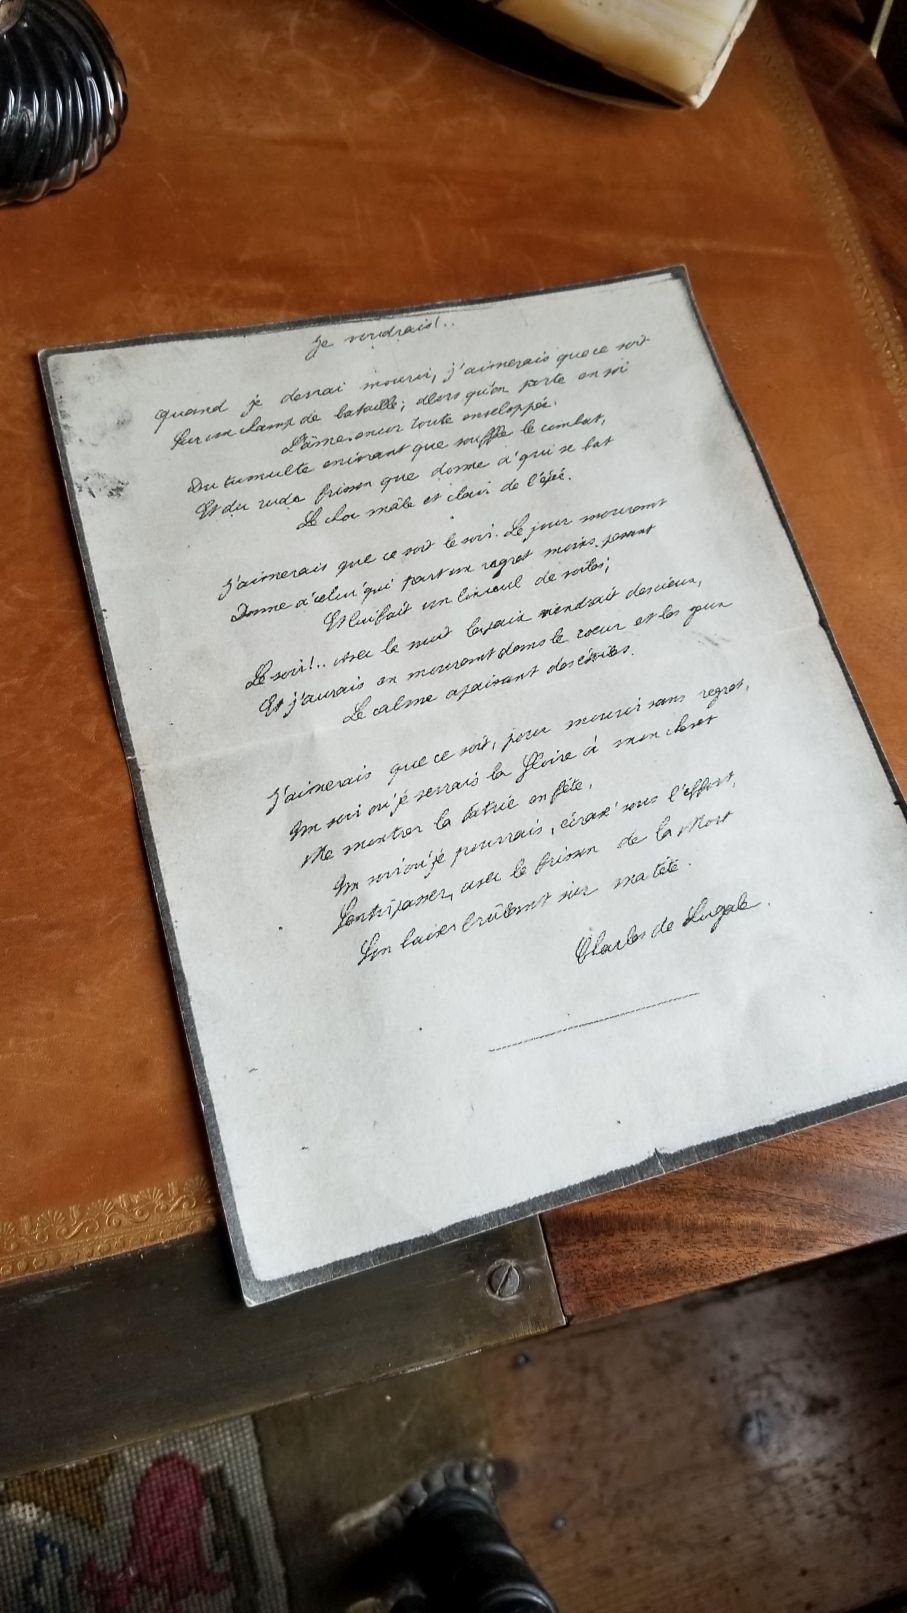 Je voudrais!..
Quand je devrai mourir, j'aimerais que ce soit
Sur un champ de bataille; alors qu'on porte en soi
L'âme encor toute enveloppée.
Du tumulte enivrant que souffle le combat,
Et du rude frisson que donne à qui se bat
Le choc mâle et clair de l'épée.
J'aimerais que ce soit le soir. Le jour mourant
Donne à celui qui part un regret moins pesant
Et lui fait un linceul de voiles;
Le soir!.. Avec la nuit la paix viendrait des cieux,
Et j'aurais en mourant dans le coeur et les yeux
Le calme apaisant des étoiles.
J'aimerais que ce soit, pour mourir sans regret,
Un soir où je verrais la Gloire à mon chevet
Me montrer la Patrie en fête,
Un soir où je pourrais, écrasé sous l'effort,
Sentir passer, avec le frisson de la Mort
Son baiser brûlant sur ma tête.
Charles de Lugale.